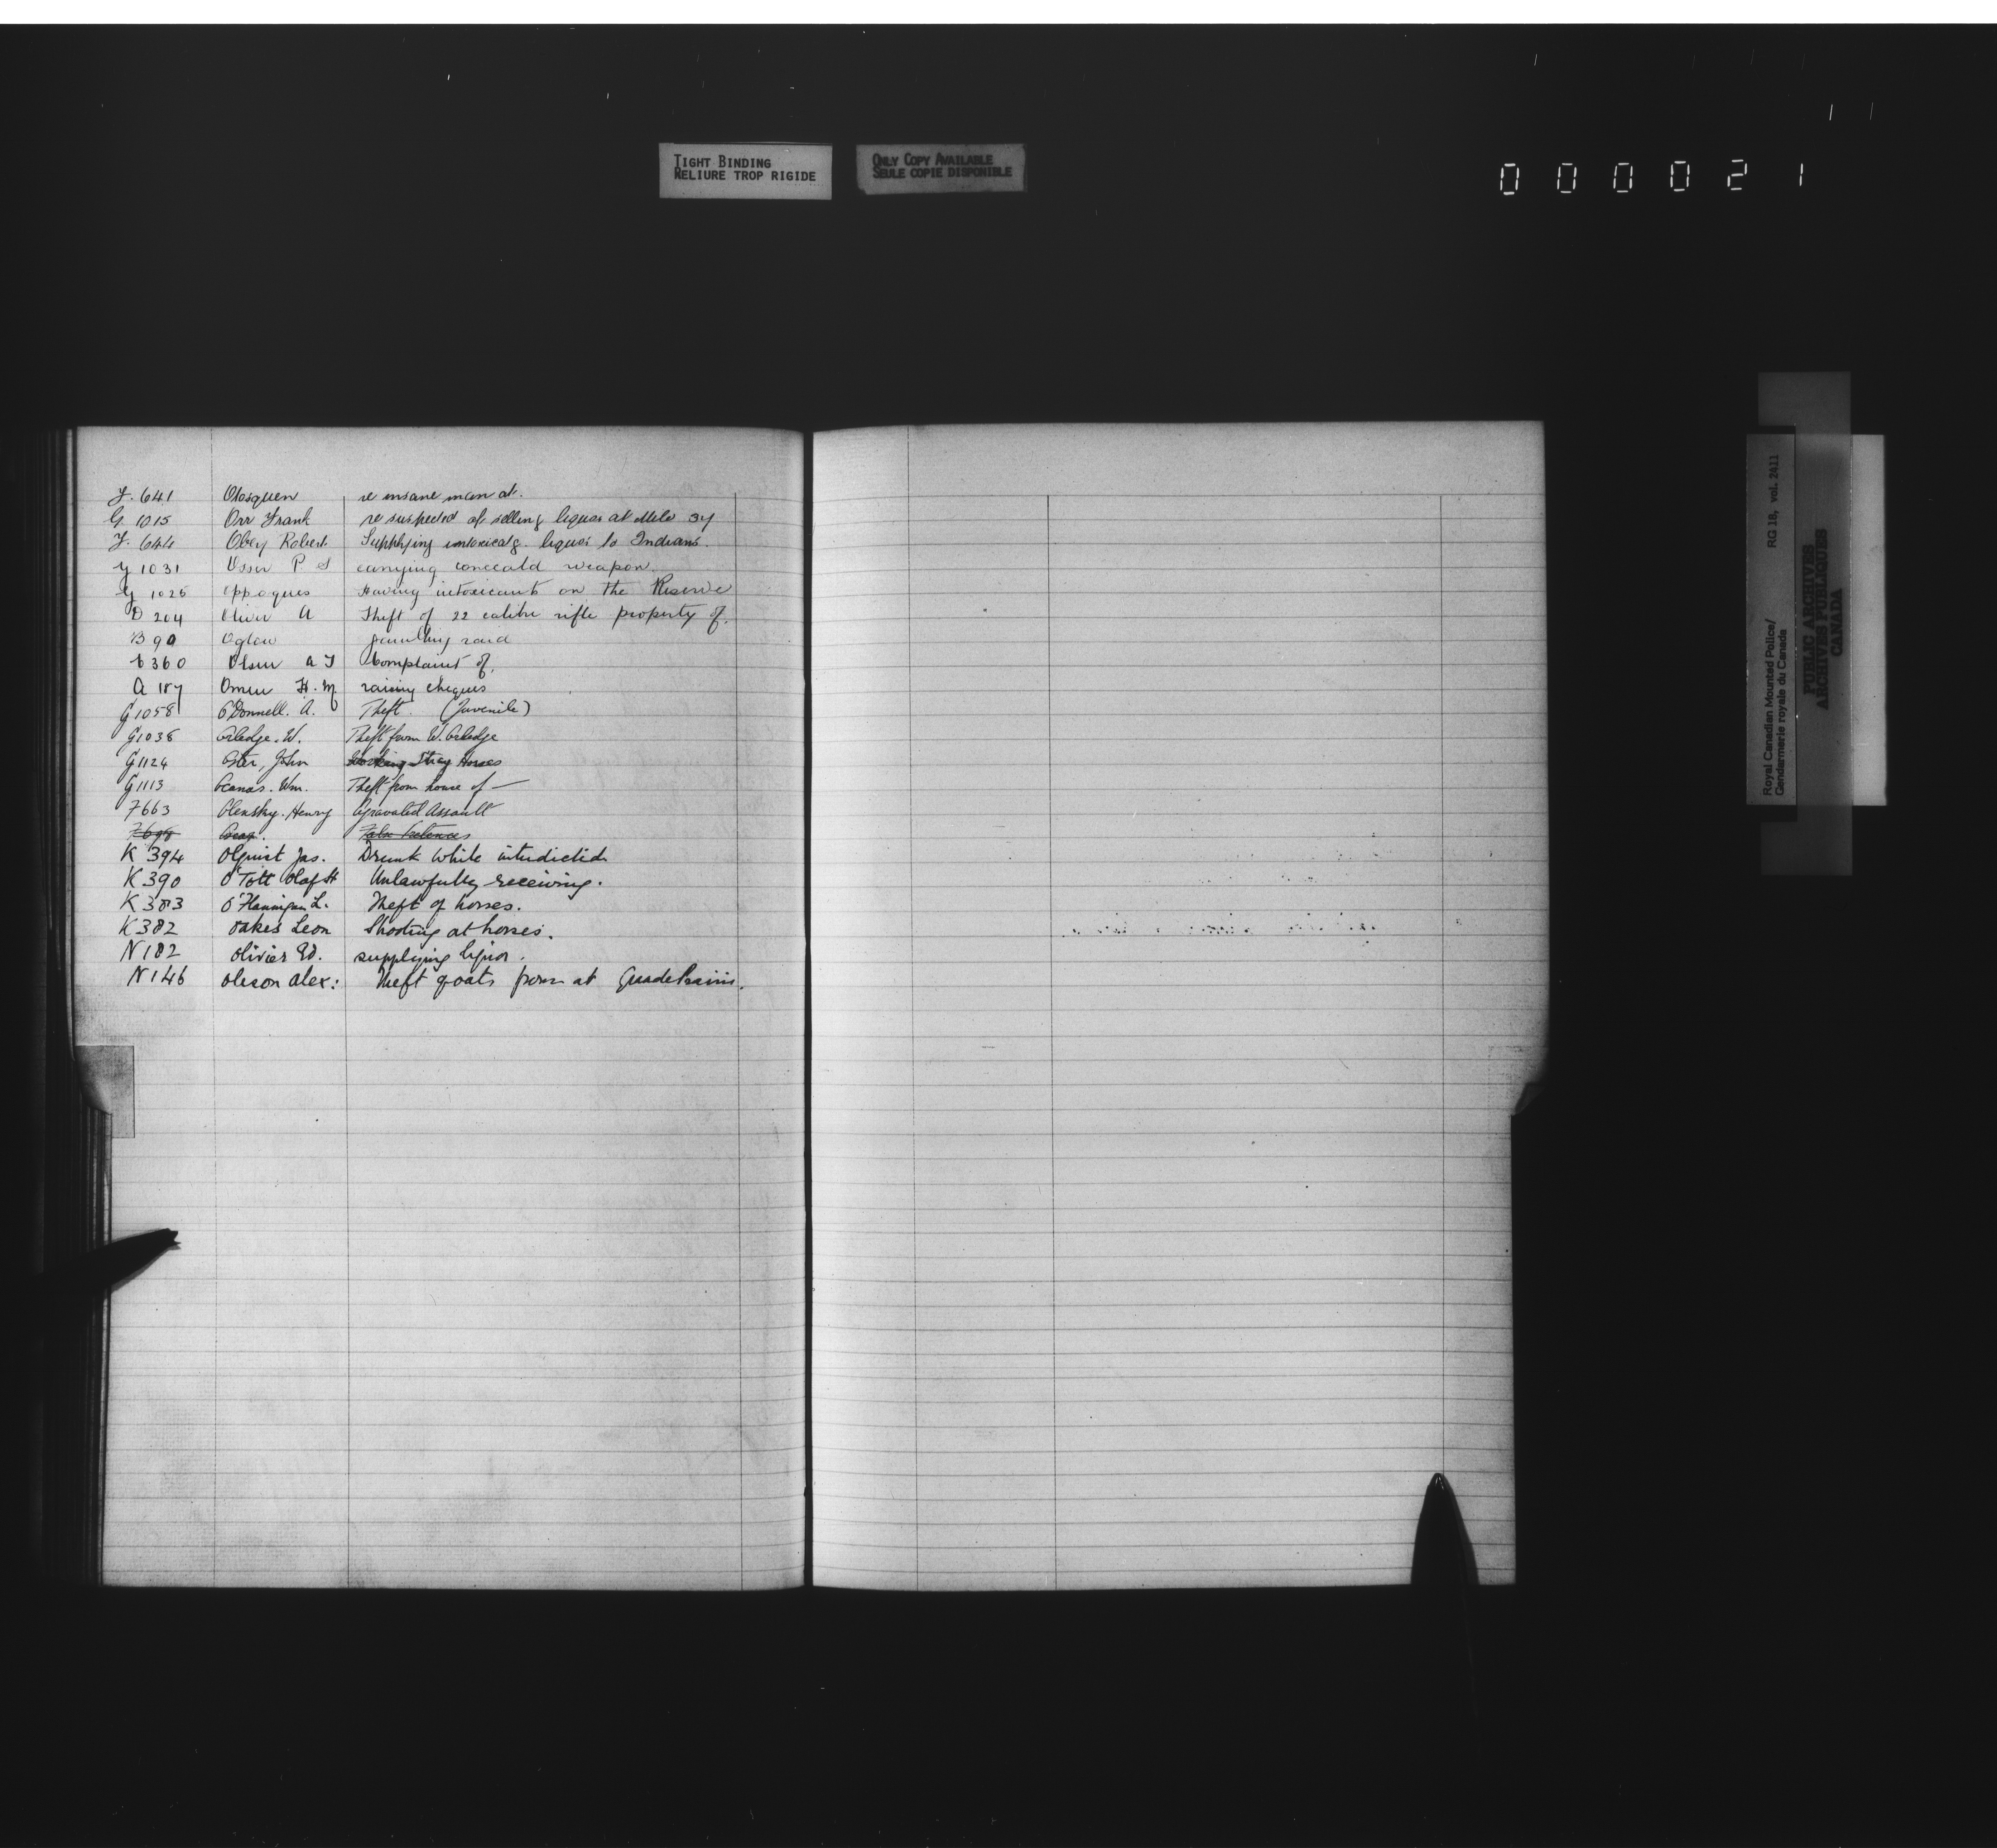 TIGHT BINDING
RELIURE TROP RIGIDE
ONLY COPY AVAILABLE
SEULE COPIE DISPONIBLE
000021
Royal Canadian Mounted Police/
Gendarmerie royale du Canada
RG 18, vol. 2411
PUBLIC ARCHIVES
ARCHIVES PUBLIQUES
CANADA
F. 641 Olosquen re insane man at.
G 1015 Orr Frank re suspected of selling liquor at Mile 34
F. 644 Obey Robert Supplying intoxicatg. liquor to Indians.
G 1031 P S carrying conceald weapon
G 1026 Oppoques Having intoxicants on the Reserve
D 204 Oliver A Theft of 22 calibre rifle property of.
B 90 Oglow gambling raid
C 360 Olsen A J Complaint of.
A 187 Omen H. M raising cheques
G 1058 O'Donnell. A. Theft. (Juvenile)
G1038 Orledge. W. Theft from W. Orledge
G1124 Oster, John Working Stray Horses
G1113 Ocanas. Wm. Theft from house of —
F663 Olensky. Henry Agravated Assault
False Pretences
K 394 Olquist Jas. Drunk while interdicted
K 390 O'Tott Olaf H Unlawfully receiving.
K 383 O'Flannigan L. Theft of horses.
K 382 Oakes Leon Shooting at horses.
N 182 Olivier Ed. supplying liquor.
N 146 Oleson Alex: Theft goats from at Grande Prairie.